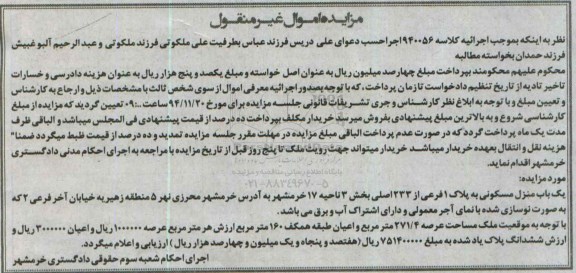 مزایده اموال غیر منقول
نظر به اینکه بموجب اجرائیه کلاسه ۹۴۰۰۵۶ اجرا حسب دعوای علی دریس فرزند عباس بطرفیت علی ملکوتی فرزند ملکوتی و عبدالرحیم آلبوغبیش فرزند حمدان بخواسته مطالبه
محکوم علیهم محکومند بپرداخت مبلغ چهارصد میلیون ریال به عنوان اصل خواسته و مبلغ یکصد و پنج هزار ریال به عنوان هزینه دادرسی و خسارات
تاخیر تادیه از تاریخ تنظیم دادخواست تا زمان پرداخت، که با توجه بصدور اجرائیه معرفی اموال از سوی شخص ثالث با مشخصات ذیل و ارجاع به کارشناس
و تعیین مبلغ و با توجه به ابلاغ نظر کارشناس و جری تشریفات قانونی جلسه مزایده برای مورخ ۹۴/۱۱/۲۰ ساعت ۰۹:۰۰ تعیین گردید که مزایده از مبلغ
کارشناسی شروع و به بالاترین مبلغ پیشنهادی بفروش میرسد خریدار مکلف بپرداخت ده درصد از قیمت پیشنهادی فی المجلس میباشد و الباقی ظرف
مدت یک ماه پرداخت گردد که در صورت عدم پرداخت الباقی مبلغ مزایده در مهلت مقرر جلسه مزایده تمدید و ده درصد از قیمت ضبط میگردد ضمنا"
هزینه نقل و انتقال بعهده خریدار میباشد خریدار میتواند جهت رویت ملک تا پنج روز قبل از تاریخ مزایده با مراجعه به اجرای احکام مدنی دادگستری
خرمشهر اقدام نماید.
مورد مزایده:
یک باب منزل مسکونی به پلاک ۱ فرعی از ۲۳۳ اصلی بخش ۳ ناحیه ۱۷ خرمشهر به آدرس خرمشهر محرزی نهر ۵ منطقه زهیریه خیابان آخر فرعی ۲ که
به صورت نوسازی شده با نمای آجر معمولی و دارای اشتراک آب و برق می باشد.
که با توجه به موقعیت ملک مساحت عرصه ۲۷۱/۴ متر مربع و اعیان طبقه همکف ۱۶۰ متر مربع ارزش هر متر مربع عرصه ۱۰۰۰۰۰۰ ریال و اعیان ۳۰۰۰۰۰۰ ریال و
ارزش ششدانگ پلاک یاد شده به مبلغ ۷۵۱۴۰۰۰۰۰ ریال (هفتصد و پنجاه و یک میلیون و چهارصد هزار ریال) ارزیابی و اعلام میگردد.
اجرای احکام شعبه سوم حقوقی دادگستری خرمشهر
۰۲۱-۸۸۳۴۹۶۷۰-۵